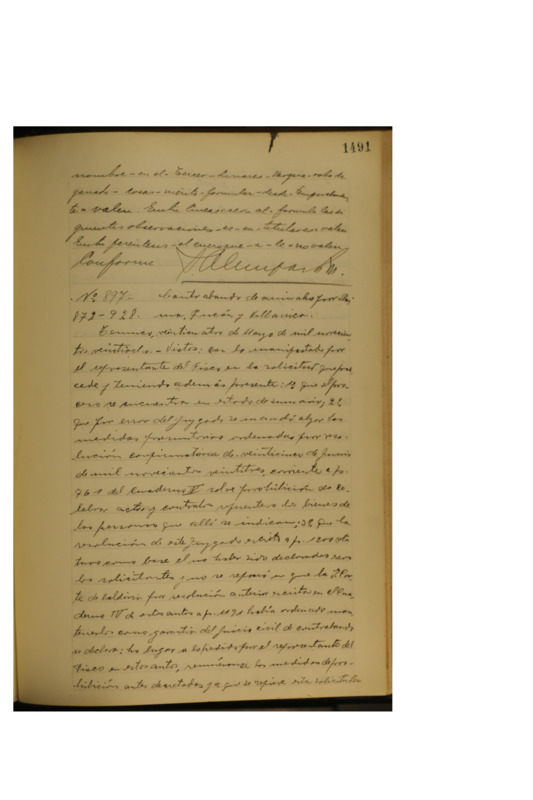 1491
nombre - en el - Tercero - Linares - Vergara - robo de
ganado - cosas - mérito - formular - sede - Impuestas
te - valen. Entre líneas al - formule las si
guientes observaciones - es - en - valen
Entre paréntesis - el que - a - le - no valen
Conforme
Nº 897- Contrabando de animales por Lli-
872-928. ma, Pucón y Villarrica.
Temuco, veinticuatro de Mayo de mil novecien
tos veintiocho. - Vistos: con lo manifestado por
el representante del Fisco en la solicitud que pre
cede y teniendo además presente: 1º que el pro
ceso se encuentra en estado de sumario; 2º
que por error del Juzgado se mandó alzar las
medidas precautorias ordenadas por reso
lución confirmatoria de veinticinco de Junio
de mil novecientos veintitres, corriente a fs.
761 del Cuaderno IV sobre prohibición de ce
lebrar actos y contratos referentes a los bienes de
las personas que allí se indican; 3º que la
resolución de este Juzgado escrita a fs. 1200
tuvo como base el no haber sido declarados reos
los solicitantes y no se reparó en que la I. Cor
te de Valdivia por resolución anterior escrita en el Cua
derno IV de estos autos a fs. 1191 había ordenado man
tenerlas como garantía del juicio civil de contrabando
se declara: ha lugar a lo pedido por el representante del
Fisco en estos autos, renuévanse las medidas de pro-
hibición antes decretadas y a que se refiere esta solicitud